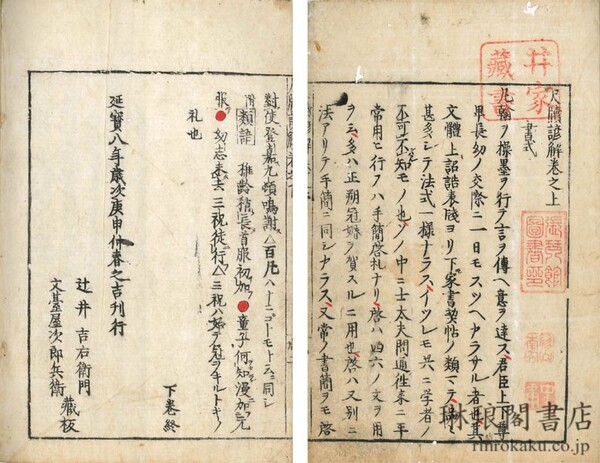 尺牘諺解巻之上
書式
凡翰ヲ操墨ヲ行テ言ヲ傳ヘ意ヲ達ス君臣上下尊
卑長幼ノ交際ニ一日モスツヘカラサル者也其
文體上詔誥表牋ヨリ下家書契帖ノ類マテ
甚多シテ法式一様ナラスイツレモ共ニ学者ノ
不可不知モノ也ソノ中ニ士太夫問通往来ニ平
常用ヒ行フハ手簡啓札ナリ啓ハ四六ノ文ヲ用
ヲ三多ハ正朔冠婚ヲ賀スルニ用也啓ハ又別ニ
法アリテ手簡ニ同シカラス又常ノ書簡ヲモ啓
井家藏書
對使登嘉九頓鳴謝百凡
類語 稚齢稍長首服初加童子何知漫加元
服幼志未去三祝徒行三祝ハ始テ冠ヲキルトキノ
礼也
下巻終
延寶八年歳次庚申仲春之吉刊行
辻井吉右衛門
文臺屋次郎兵衛 藏板
琳琅閣書店
rinrokaku.co.jp